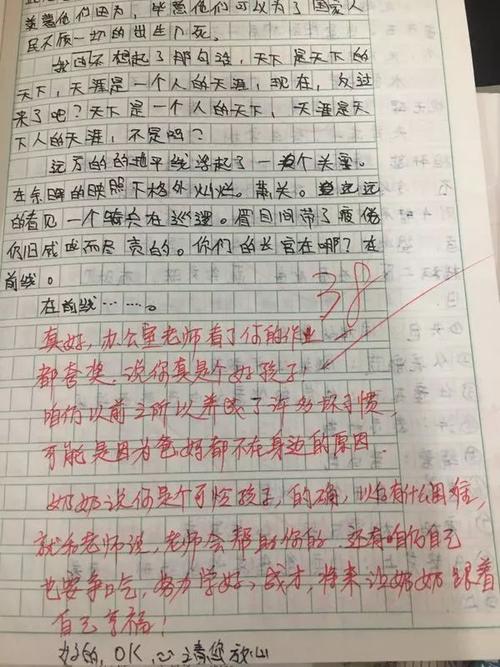 羡慕他们因为，毕竟他们可以为了国家人
民不顾一切的出生入死。
我不想起了那句话，天下是天下的
天下，天涯是一个人的天涯，现在，反过
来了吧？天下是一个人的天下，天涯是天
下人的天涯，不是吗？
远方的的地平线浮起了一个关塞。
在余晖的映照下格外灿烂。萧关。远远
的看见一个骑兵在巡逻。眉目间带了疲倦
仍旧威武不尽责的。你们的长官在哪？在
前线。
在前线……。
38
真好，办公室老师看了你的作业
都夸奖，说你真是个好孩子！
咱们以前之所以养成了许多坏习惯，
可能是因为爸妈都不在身边的原因。
奶奶说你是个可怜孩子，的确，以后有什么困难，
就和老师说，老师会帮助你的。还有咱们自己
也要争口气，努力学好，成才，将来让奶奶跟着
自己享福！
好的，OK，请您放心